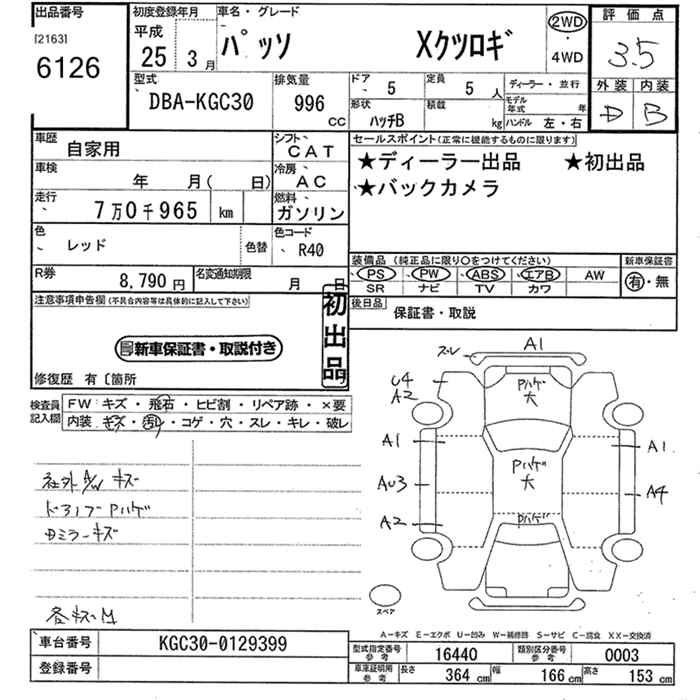 出品番号
[2163]
6126
初度登録年月
平成
25年3月
車名・グレード
パッソ Xクツロギ
2WD
・
4WD
評価点
3.5
外装 内装
D B
型式
DBA-KGC30
排気量
996
CC
ドア
5
定員
5人
ディーラー・並行
形状
ハッチB
積載
kg
モデル年式 年
ハンドル 左・右
車歴
自家用
シフト
CAT
車検
年 月( 日)
冷房
AC
走行
7万0千965 km
燃料
ガソリン
色
レッド
色替
色コード
R40
R券
8,790円
名変通知期限
月 日
セールスポイント(正常に機能するものに限ります)
★ディーラー出品 ★初出品
★バックカメラ
装備品 (純正品に限り○をつけてください)
新車保証書
PS PW ABS エアB AW
SR ナビ TV カワ
有・無
後日品
保証書・取説
注意事項申告欄(不具合内容等は具体的に記入して下さい)
初出品
新車保証書・取説付き
修復歴 有〔箇所
検査員記入欄
FW:キズ・飛石・ヒビ割・リペア跡・×要
内装:キズ・汚レ・コゲ・穴・スレ・キレ・破レ
社外A/W キズ
ドアノブPハゲ
ミラーキズ
スレ
A1
U4
A2
Pハゲ
大
A1
A1
Pハゲ
大
AU3
A4
A2
Pハゲ
スペア
A-キズ E-エクボ U-凹み W-補修跡 S-サビ C-腐食 XX-交換済
車台番号
KGC30-0129399
登録番号
型式指定番号
参考
16440
類別区分番号
参考
0003
車庫証明用
参考
長さ
364 cm
幅
166 cm
高さ
153 cm